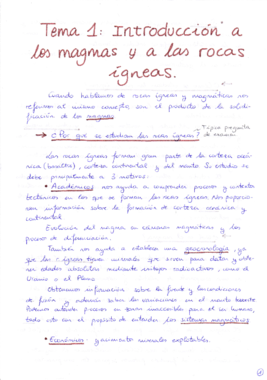 Tema 1: Introducción a
los magmas y a las rocas
ígneas.
Cuando hablamos de rocas ígneas y magmáticas nos
referimos al mismo concepto, son el producto de la solidi-
ficación de los magmas
→ ¿Por qué se estudian las rocas ígneas? Típica pregunta
de examen
Las rocas ígneas forman gran parte de la corteza oceá-
nica (basaltos), corteza continental y del manto. Su estudio se
debe principalmente a 3 motivos:
• Académicos: nos ayuda a comprender procesos y contextos
tectónicos en los que se forman las rocas ígneas. Nos proporcio-
nan información sobre la formación de corteza oceánica y
continental
Evolución del magma en cámaras magmáticas y los
procesos de diferenciación.
También nos ayuda a establecer una geocronología, ya
que las r. ígneas tienen minerales que sirven para datar y obte-
ner edades absolutas mediante isótopos radioactivos, como el
Uranio o el Plomo
Obtenemos información sobre la fuente y las condiciones
de fusión y además sobre las variaciones en el manto terrestre
Podemos entender procesos en zonas inaccesibles para el ser humano,
todo esto con el propósito de entender los sistemas magmáticos
• Económicos: yacimientos minerales explotables.
1